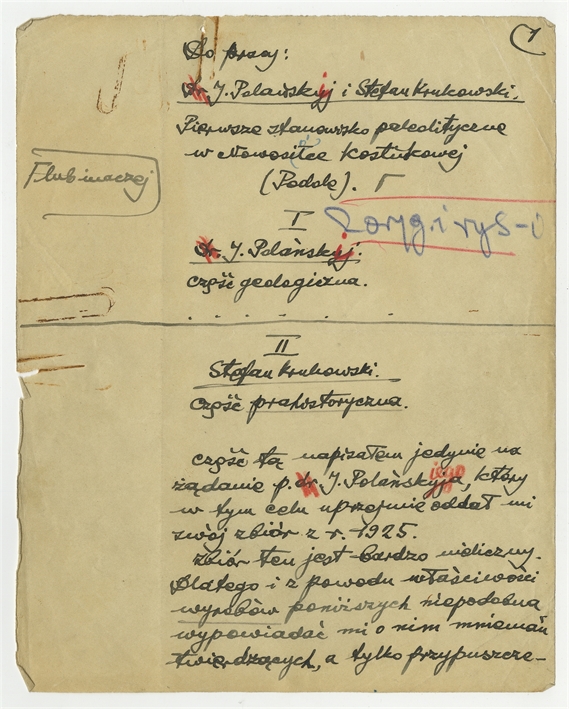 1
Do pracy:
Dr J. Polańskyj i Stefan Krukowski.
Pierwsze stanowisko paleolityczne
w Nowosiłce Kostiukowej
(Podole).
F lub inaczej
2 oryg. i rys-
I
Dr. J. Polańskyj.
część geologiczna.
II
Stefan Krukowski.
część prahistoryczna.
część tą napisałem jedynie na
żądanie p. dr. J. Polańskyja, który
iego
w tym celu uprzejmie oddał mi
swój zbiór z r. 1925.
Zbiór ten jest bardzo nieliczny.
Dlatego i z powodu właściwości
wyrobów poniższych niepodobna
wypowiadać mi o nim mniemań
twierdzących, a tylko przypuszcze-